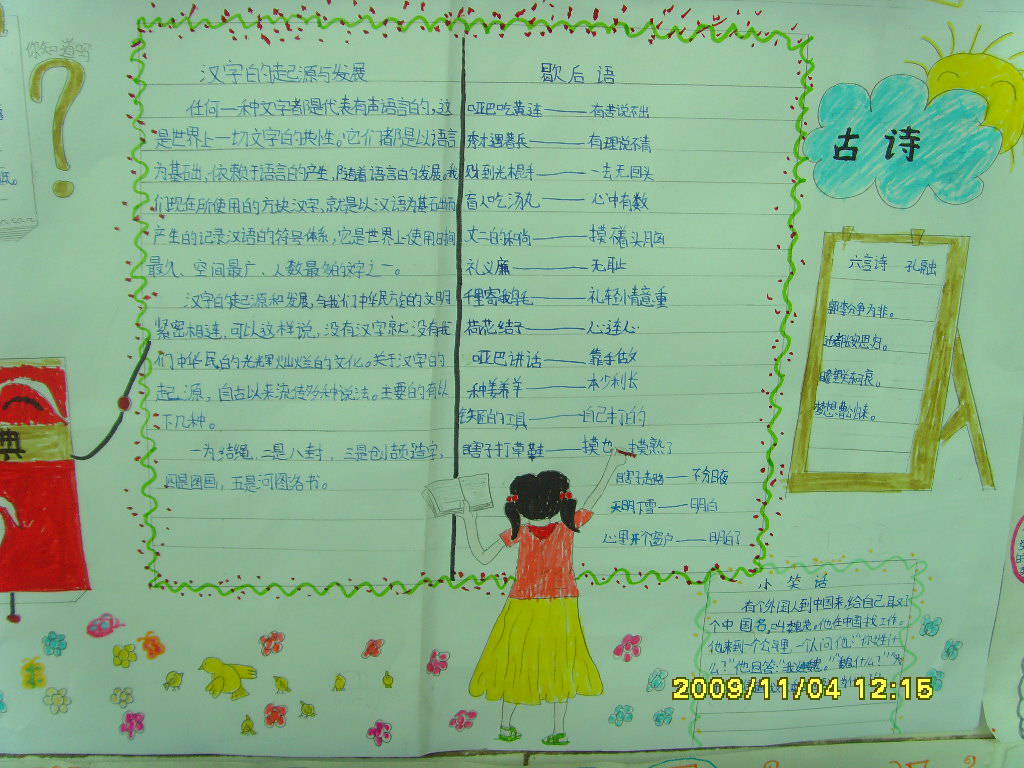 你知道吗
汉字的起源与发展
任何一种文字都是代表有声语言的,这
是世界上一切文字的共性。它们都是以语言
为基础、依赖于语言的产生,随着语言的发展。我
们现在所使用的方块汉字,就是以汉语为基础而
产生的记录汉语的符号体系,它是世界上使用时间
最久、空间最广、人数最多的文字之一。
汉字的起源和发展,与我们中华民族的文明
紧密相连,可以这样说,没有汉字就没有我
们中华民的光辉灿烂的文化。关于汉字的
起源,自古以来流传多种说法。主要的有以
下几种。
一为结绳,二是八卦,三是仓颉造字,
四是图画,五是河图洛书。
歇后语
哑巴吃黄连——有苦说不出
秀才遇着兵——有理说不清
——一去无回头
盲人吃汤丸——心中有数
丈二的和尚——摸着头脑
礼义廉——无耻
千里寄鹅毛——礼轻情意重
荷花结子——心连心
哑巴讲话——靠手做
——本少利长
铁匠的工具——自己打的
瞎子打草鞋——摸也摸熟了
瞎子走路——不分日夜
天明下雪——明白
心里开个窗户——明白了
古诗
六言诗 孔融
郭李分争为非。
典
小笑话
有个外国人到中国来,给自己取了
个中国名,叫 他在中国找工作。
他来到一个公司里,一人问他:“你姓什
么?”他回答:“我 ”“ 什么?”
2009/11/04 12:15